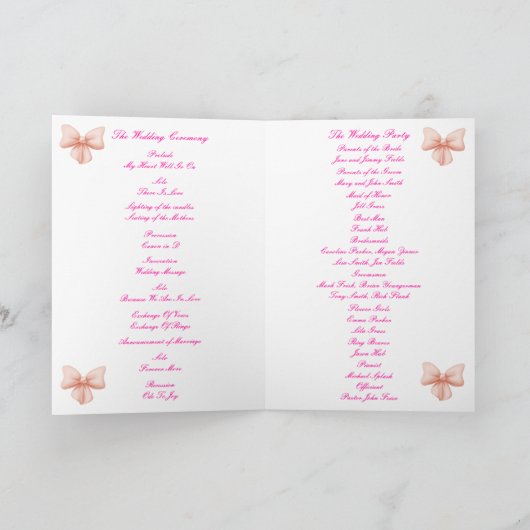 The Wedding Ceremony
Prelude
My Heart Will Go On
Solo
There Is Love
Lighting of the candles
Seating of the Mothers
Procession
Canon in D
Invocation
Wedding Message
Solo
Because We Are In Love
Exchange Of Vows
Exchange Of Rings
Announcement of Marriage
Solo
Forever More
Recession
Ode To Joy
The Wedding Party
Parents of the Bride
Jane and Jimmy Fields
Parents of the Groom
Mary and John Smith
Maid of Honor
Jill Grass
Best Man
Frank Hub
Bridesmaids
Caroline Parker, Megan Dinner
Lisa Smith, Jen Fields
Groomsmen
Mark Fresh, Brian Youngerman
Tony Smith, Rich Flank
Flower Girls
Emma Parker
Lila Grass
Ring Bearer
Jason Hub
Pianist
Michael Splash
Officient
Pastor John